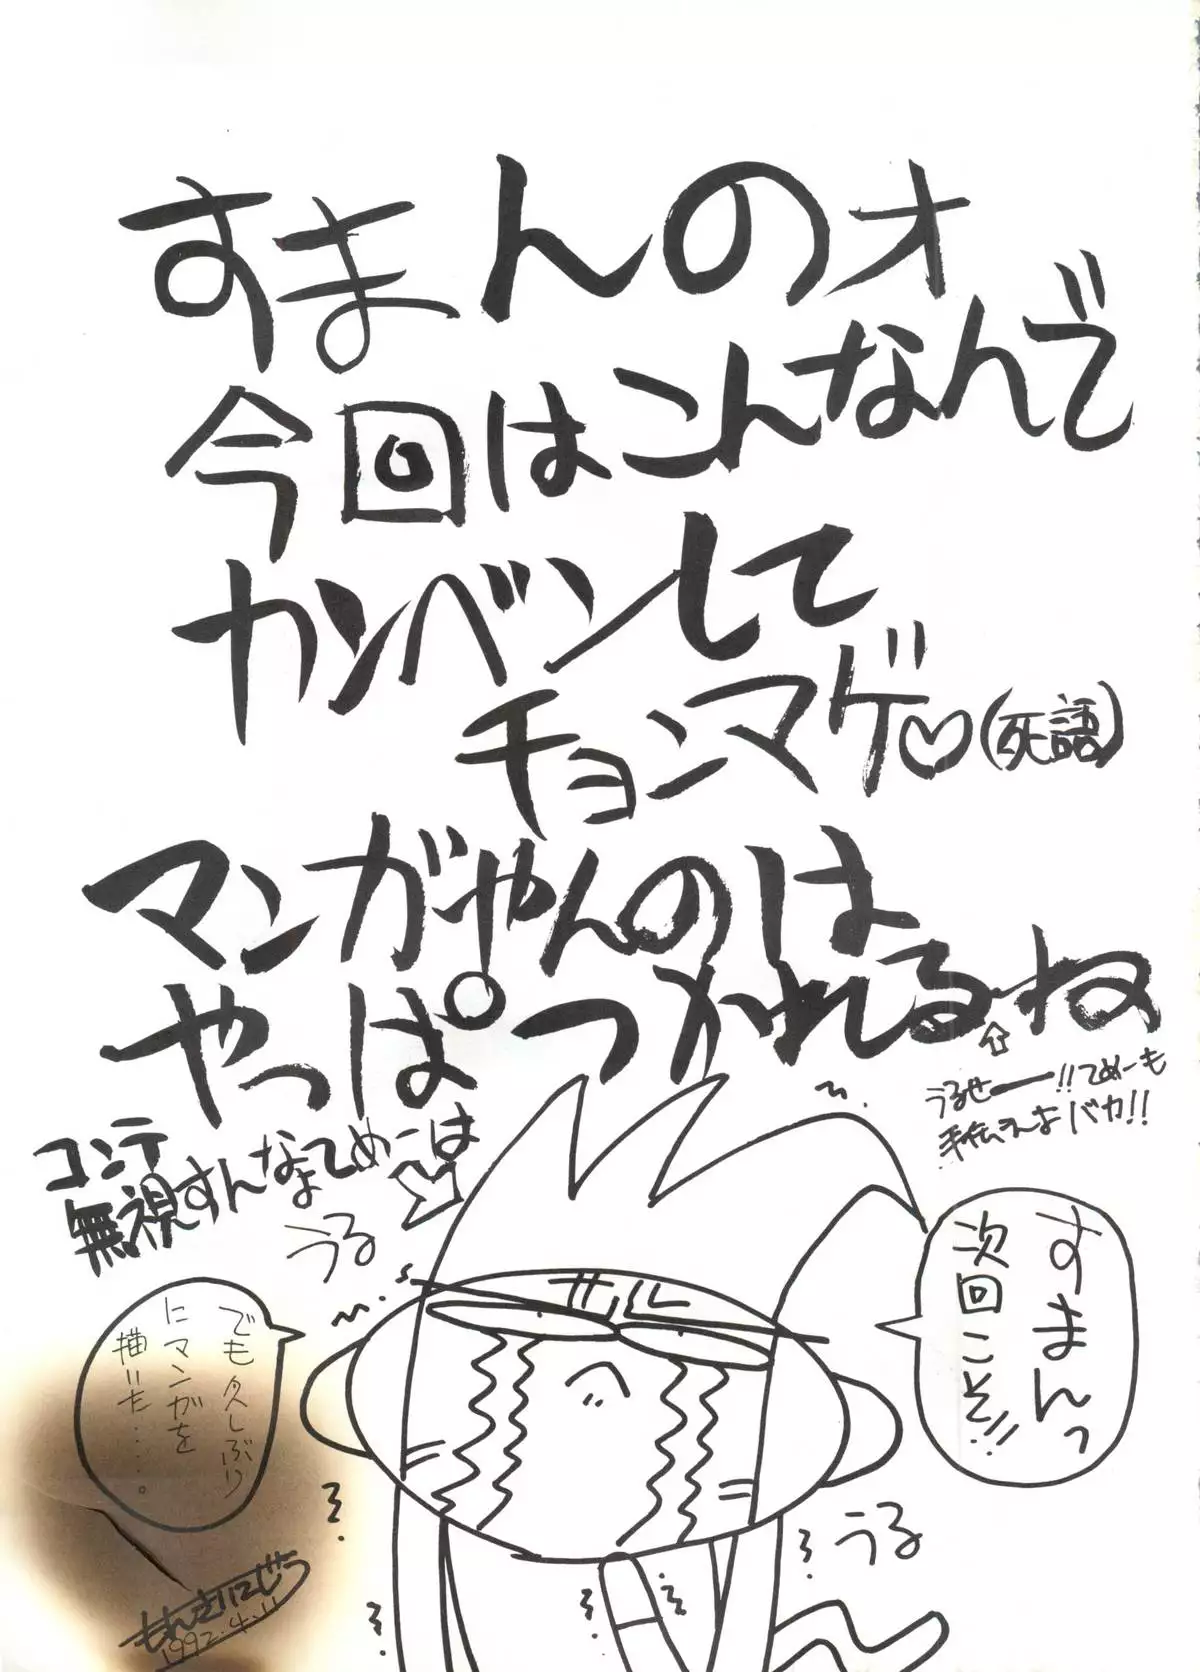 すまんのォ
今回はこんなんで
カンベンして
チョンマゲ♡(死語)
マンガやんのは
やっぱつかれるね
うるせー!!てめーも
手伝えよバカ!!
コンテ
無視すんなてめーは
うる
すまんっ
次回こそ!!
でも久しぶり
にマンガを
描いた……。
サル
うる
もんきにじう
1992.4.11